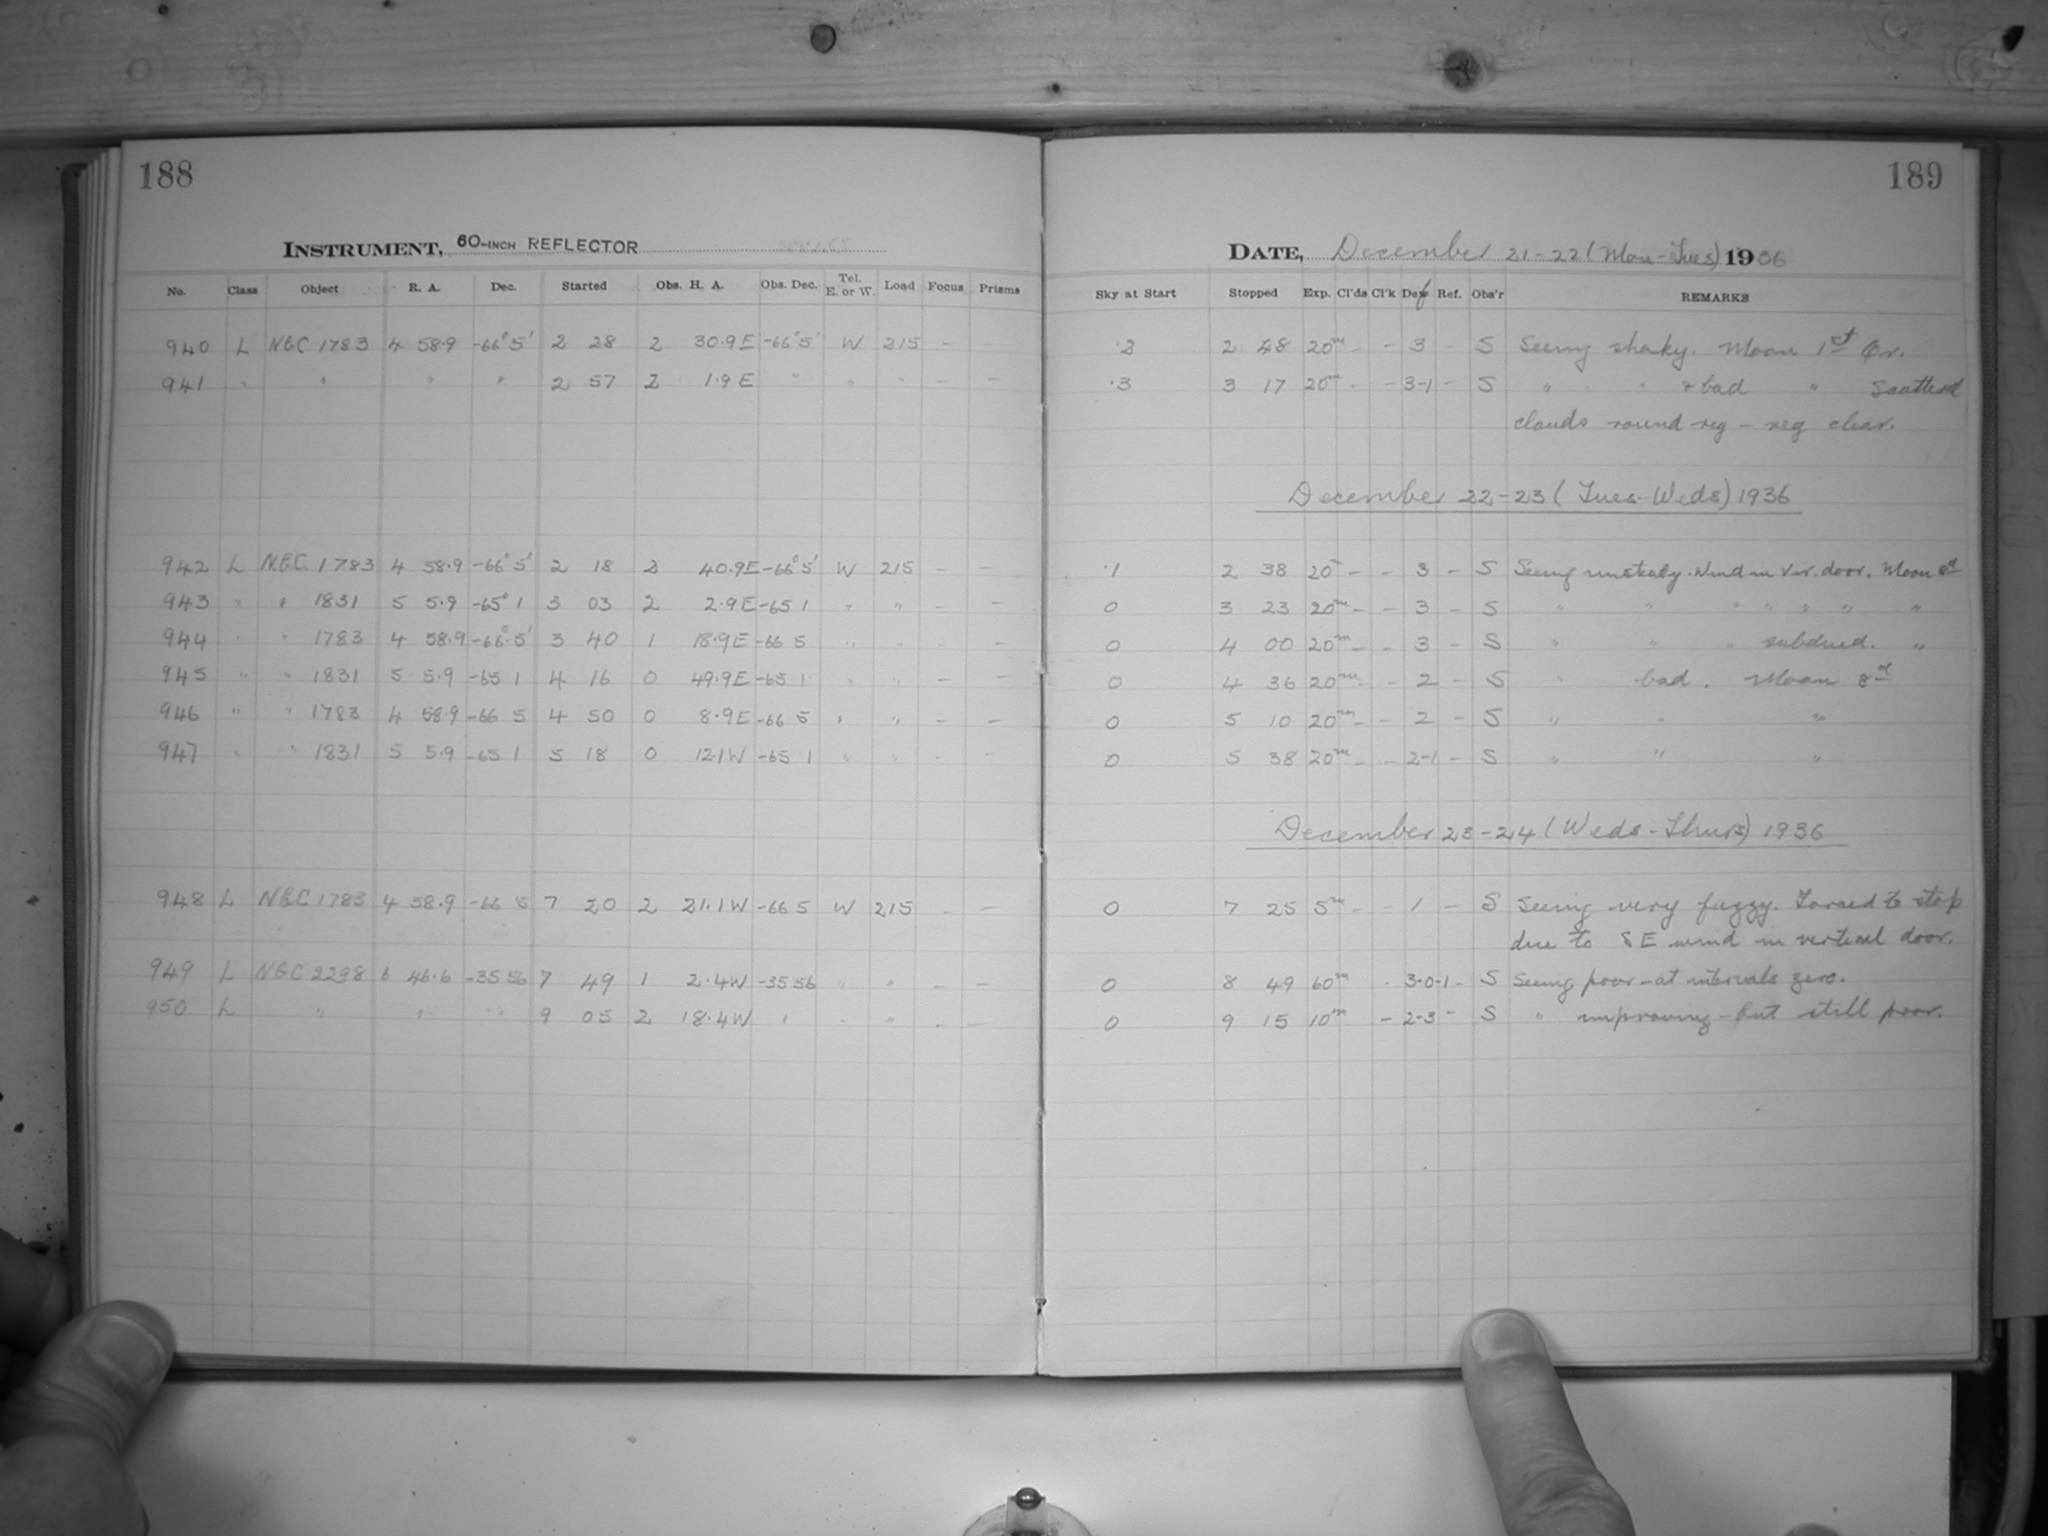 188
INSTRUMENT, 60-INCH REFLECTOR
No. Class Object R. A. Dec. Started Obs. H. A. Obs. Dec. Tel. E. or W. Load Focus Prisms
940 L NGC 1783 4 58.9 -66° 5' 2 28 2 30.9 E -66° 5' W 215 - -
941 " " " " 2 57 2 1.9 E " " " - -
942 L NGC 1783 4 58.9 -66° 5' 2 18 2 40.9E -66° 5' W 215 - -
943 " " 1831 5 5.9 -65° 1 3 03 2 2.9 E -65 1 " " - -
944 " " 1783 4 58.9 -66° 5' 3 40 1 18.9E -66 5 " " - -
945 " " 1831 5 5.9 -65 1 4 16 0 49.9E -65 1 " " - -
946 " " 1783 4 58.9 -66 5 4 50 0 8.9E -66 5 " " - -
947 " " 1831 5 5.9 -65 1 5 18 0 12.1W -65 1 " " - -
948 L NGC 1783 4 58.9 -66 5 7 20 2 21.1W -66 5 W 215 - -
949 L NGC 2298 6 46.6 -35 56 7 49 1 2.4W -35 56 " " - -
950 L " " " 9 05 2 18.4W " " " - -
189
DATE, December 21-22 (Mon-Tues) 1936
Sky at Start Stopped Exp. Cl'ds Cl'k Def Ref. Obs'r REMARKS
.2 2 48 20m - - 3 - S Seeing shaky. Moon 1st Qr.
.3 3 17 20m - - 3-1 - S " " & bad " Scattered
clouds round reg - reg clear.
December 22-23 (Tues-Weds) 1936
.1 2 38 20m - - 3 - S Seeing unsteady. Wind in Ver. door. Moon 8d
0 3 23 20m - - 3 - S " " " " " " "
0 4 00 20m - - 3 - S " " " subdued. "
0 4 36 20m - - 2 - S " bad. Moon 8d
0 5 10 20m - - 2 - S " " "
0 5 38 20m - - 2-1 - S " " "
December 23-24 (Weds-Thurs) 1936
0 7 25 5m - - 1 - S Seeing very fuzzy. Forced to stop
due to SE wind in vertical door.
0 8 49 60m - 3-0-1 - S Seeing poor - at intervals zero.
0 9 15 10m - 2-3 - S " improving - but still poor.